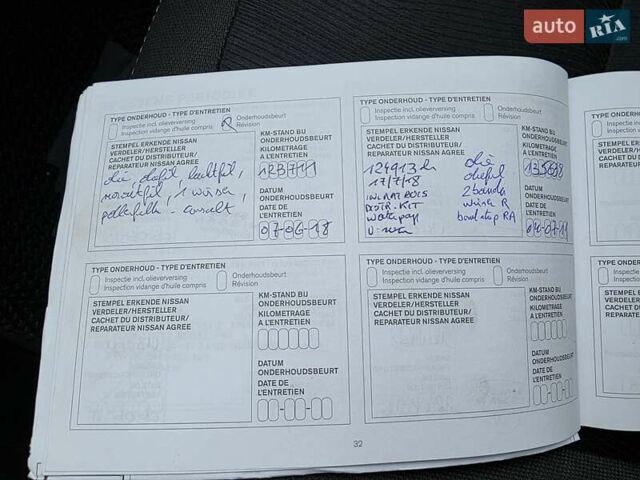 auto RIA .com
TYPE ONDERHOUD - TYPE D'ENTRETIEN
Inspectie incl. olieverversing
Inspection vidange d'huile compris
Onderhoudsbeurt
Révision
STEMPEL ERKENDE NISSAN
VERDELER/HERSTELLER
CACHET DU DISTRIBUTEUR/
REPARATEUR NISSAN AGREE
KM-STAND BIJ
ONDERHOUDSBEURT
KILOMETRAGE
A L'ENTRETIEN
123711
olie, oliefilt, luchtfilt,
1
pollenfilt
DATUM
ONDERHOUDSBEURT
DATE DE
L'ENTRETIEN
07-06-18
TYPE ONDERHOUD - TYPE D'ENTRETIEN
Inspectie incl. olieverversing
Inspection vidange d'huile compris
Onderhoudsbeurt
Révision
STEMPEL ERKENDE NISSAN
VERDELER/HERSTELLER
CACHET DU DISTRIBUTEUR/
REPARATEUR NISSAN AGREE
KM-STAND BIJ
ONDERHOUDSBEURT
KILOMETRAGE
A L'ENTRETIEN
17/7/18
DISTR. KIT
olie
2 banden
DATUM
ONDERHOUDSBEURT
DATE DE
L'ENTRETIEN
TYPE ONDERHOUD - TYPE D'ENTRETIEN
Inspectie incl. olieverversing
Inspection vidange d'huile compris
Onderhoudsbeurt
Révision
STEMPEL ERKENDE NISSAN
VERDELER/HERSTELLER
CACHET DU DISTRIBUTEUR/
REPARATEUR NISSAN AGREE
KM-STAND BIJ
ONDERHOUDSBEURT
KILOMETRAGE
A L'ENTRETIEN
DATUM
ONDERHOUDSBEURT
DATE DE
L'ENTRETIEN
TYPE ONDERHOUD - TYPE D'ENTRETIEN
Inspectie incl. olieverversing
Inspection vidange d'huile compris
Onderhoudsbeurt
Révision
STEMPEL ERKENDE NISSAN
VERDELER/HERSTELLER
CACHET DU DISTRIBUTEUR/
REPARATEUR NISSAN AGREE
KM-STAND BIJ
ONDERHOUDSBEURT
KILOMETRAGE
A L'ENTRETIEN
DATUM
ONDERHOUDSBEURT
DATE DE
L'ENTRETIEN
32